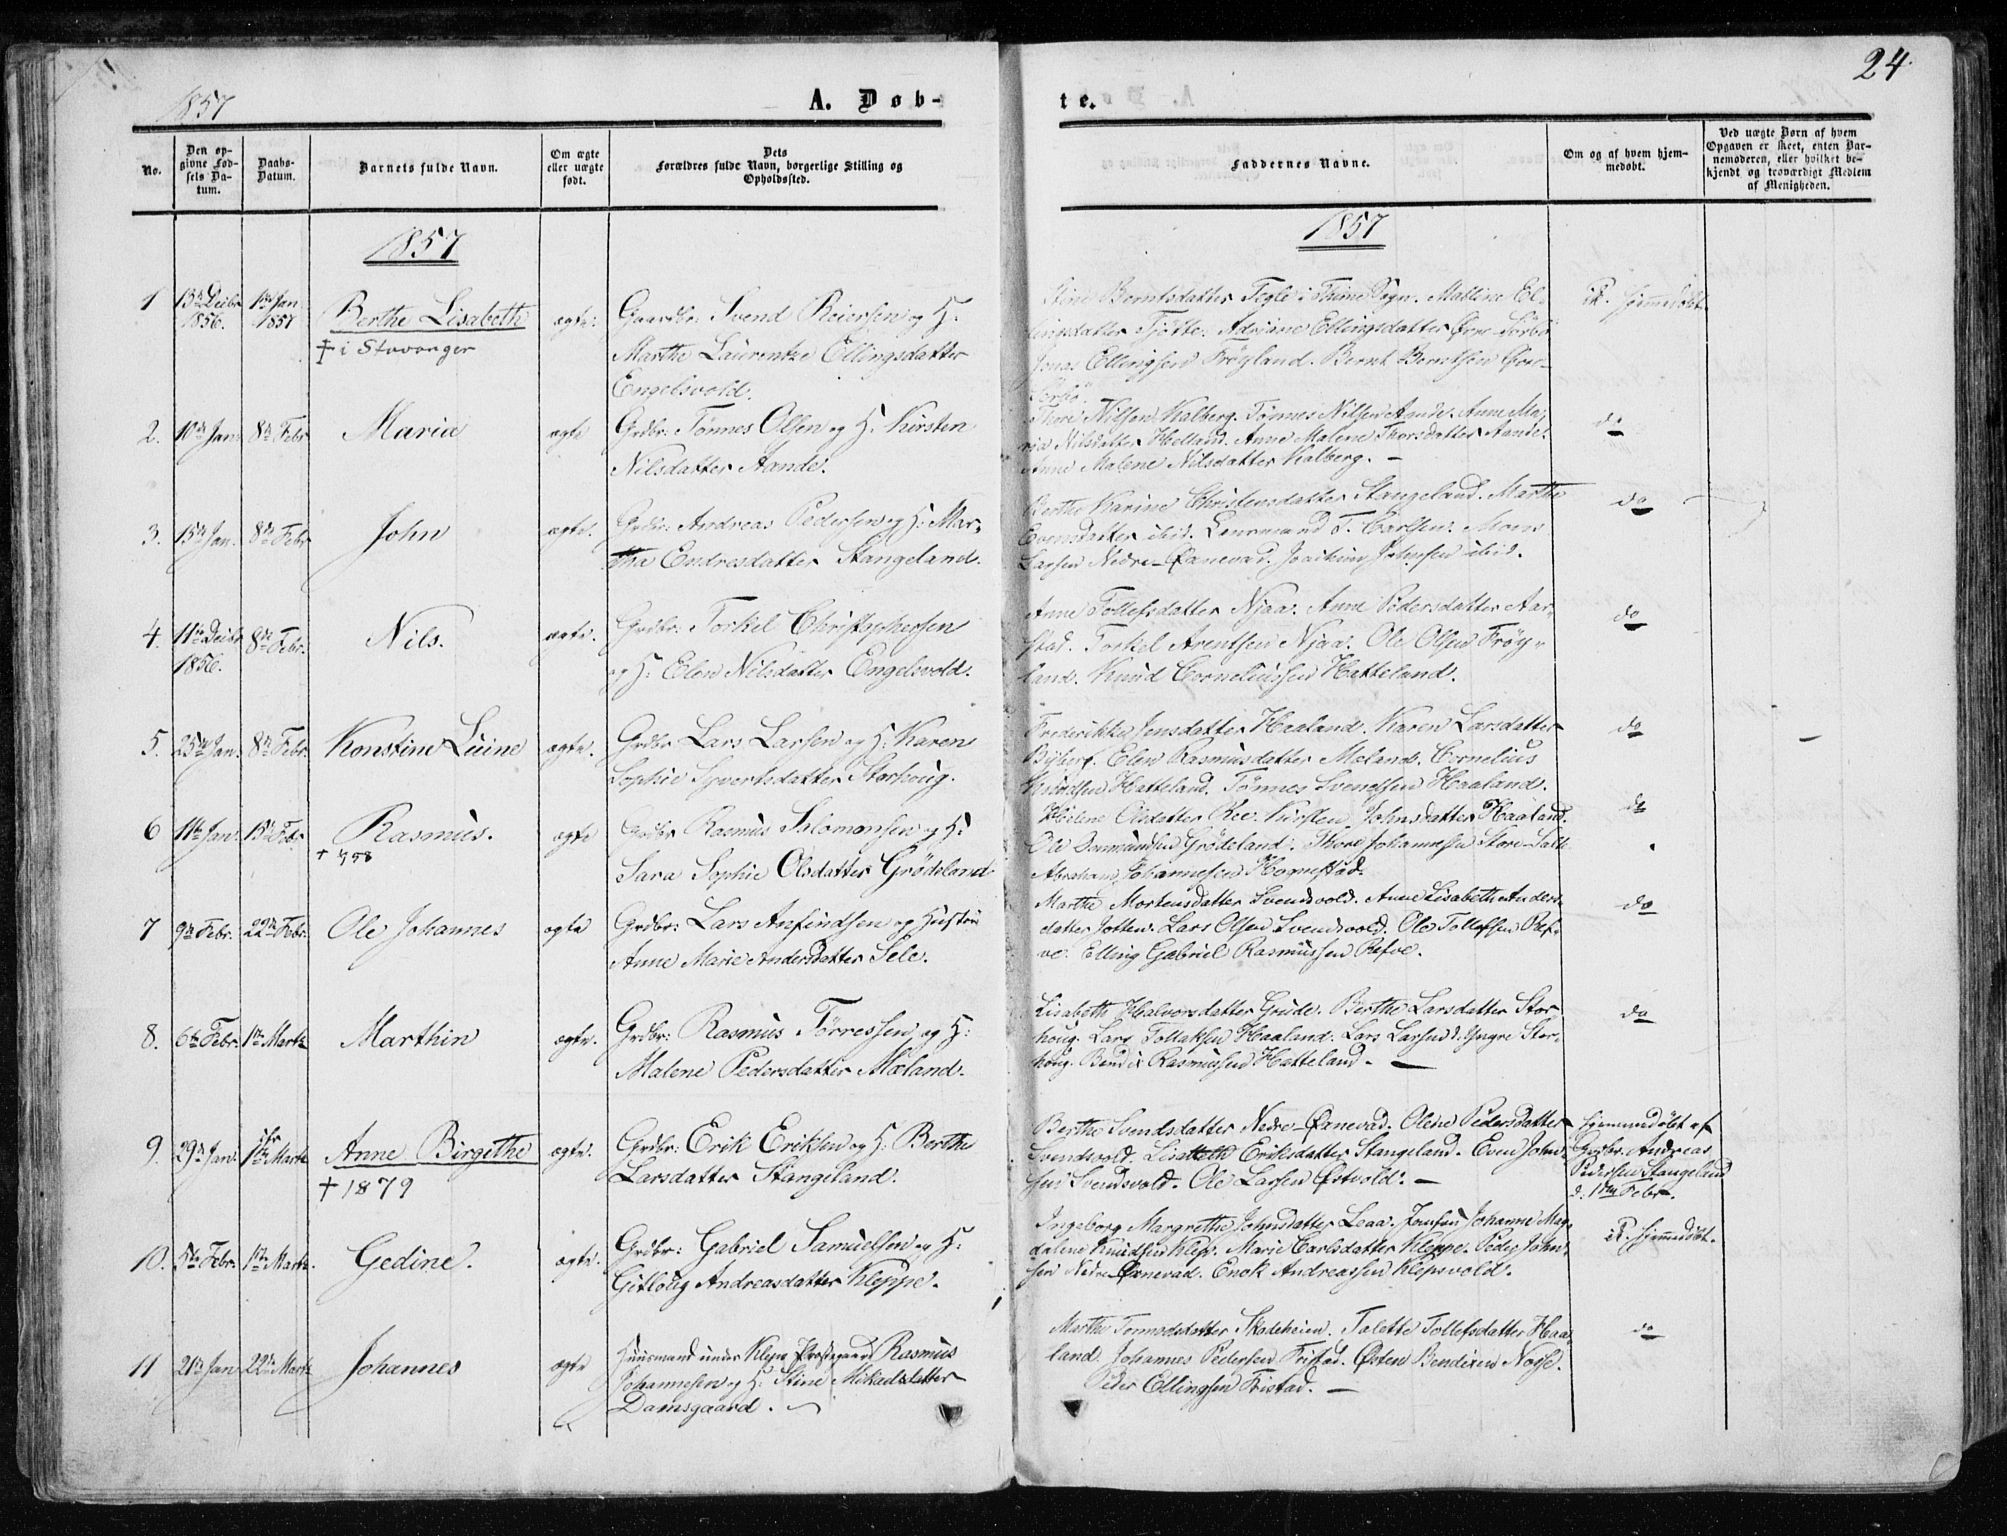 24.
1857
A. Døb-
te.
No.
Den op-
givne Fød-
sels Da-
tum.
Daabs-
Datum.
Barnets fulde Navn.
Om ægte
eller uægte
født.
Dets
Forældres fulde Navn, borgerlige Stilling og
Opholdssted.
Faddernes Navne.
Om og af hvem hjem-
medøbt.
Ved uægte Børn af hvem
Opgaven er skeet, enten Bar-
nemoderen, eller hvilket be-
kjendt og troværdigt Medlem
af Menigheden.
1857
1857
1
13de Decbr
1856.
1ste Jan.
1857
Berthe Lisabeth
† i Stavanger
ægte.
Gaardbr: Svend Reiersen og H:
Marthe Laurentze Ellingsdatter
Engelsvold.
Stine Berntsdatter Tegle i Thime Sogn. Malline El-
lingsdatter Tjøtte. Adriane Ellingsdatter Øvre-Sørbø
Jonas Ellingsen Frøyland. Bernt Berntsen Øvre-
Sørbø.
ik. hjemmedøbt.
2.
10de Jan.
8de Febr
Maria
ægte
Grdbr: Tønnes Olsen og H. Kirsten
Nilsdatter Aande.
Thore Nilsen Kalberg. Tønnes Nilsen Aande. Anne Ma-
ria Nilsdatter Helland. Anne Malene Thorsdatter Aande.
Anne Malene Nilsdatter Kalberg. —
do
3.
15de Jan.
8de Febr
John
ægte.
Grdbr: Andreas Pedersen og H: Mar-
tha Endresdatter Stangeland.
Berthe Karine Christensdatter Stangeland. Marthe
Evensdatter ibid. Lensmand T. Carlsen. Mons
Larsen Nedre-Øxnevad. Joachim Johnsen ibid.
do
4.
11te Decbr
1856.
8de Febr.
Nils.
ægte.
Grdbr: Torkel Christophersen
og H: Elen Nilsdatter Engelsvold.
Anne Tollefsdatter Njaa. Anne Pedersdatter Aar-
stad. Torkel Arentsen Njaa. Ole Olsen Frøy-
land. Knud Corneliussen Hatteland.
do
5.
25de Jan.
8de Febr.
Konstine Luine
ægte.
Grdbr Lars Larsen og H: Karen
Sophie Syvertsdatter Storhoug.
Frederikke Jensdatter Haaland. Karen Larsdatter
Byberg. Elen Rasmusdatter Meland. Cornelius
Knudsen Hatteland. Tønnes Svendsen Haaland.
do
—
6
11te Jan.
15de Febr
Rasmus.
† 1/7 58
ægte
Grdbr Rasmus Salomonsen og H:
Sara Sophie Olsdatter Grødeland
Helene Olsdatter Ree. Kirsten Johnsdatter Haaland.
Ole Osmundsen Grødeland. Thore Johannesen Store-Salte
Abraham Johannesen Hognestad.
do
7
9de Febr.
22de Febr.
Ole Johannes
ægte
Grdbr: Lars Anfindsen og Hustru
Anne Marie Andersdatter Sele.
Marthe Mortensdatter Svendsvold. Anne Lisabeth Anders-
datter Jotten. Lars Olsen Svendsvold. Ole Tollefsen Ref-
ve. Elling Gabriel Rasmussen Refve.
do
8.
6te Febr.
1ste Marts
Marthin
ægte.
Grdbr: Rasmus Tørressen og H:
Malene Pedersdatter Mæland.
Lisabeth Halvorsdatter Grude. Berthe Larsdatter Stor-
houg. Lars Tollaksen Haaland. Lars Larsen d. Yngre Stor-
houg. Bendix Rasmussen Hatteland. —
do
9.
29de Jan.
1ste Marts
Anne Birgethe
† 1879
ægte.
Grdbr: Erik Eriksen og H: Berthe
Larsdatter Stangeland.
Berthe Svendsdatter Nedre-Øxnevad. Olene Pedersdatter
Svendsvold. Lisabeth Eriksdatter Stangeland. Even John-
sen Svendsvold. Ole Larsen Østvold. —
hjemmedøbt af
Grdbr. Andreas
Pedersen Stangeland
d. 1ste Febr.
10.
5te Febr.
1ste Marts.
Gedine.
ægte.
Grdbr: Gabriel Samuelsen og H:
Gitloug Andreasdatter Kleppe.
Ingeborg Margrethe Johnsdatter Leaa. Jomfru Johanne Mag-
dalene Knudsen Klep. Marie Carlsdatter Kleppe. Peder John-
sen Nedre-Øxnevad. Enok Andreassen Klepsvold.
ik. hjemmedøbt.
11
21de Jan
22de Marts
Johannes
ægte
Huusmand under Klep Præstegaard Rasmus
Johannesen og H: Stine Mikaelsdatter
Damsgaard.
Marthe Tormodsdatter Skadeheien. Talette Tollefsdatter Haa-
land. Johannes Pedersen Fristad. Østen Bendixen Nærhe.
Peder Ellingsen Fristad. —
do